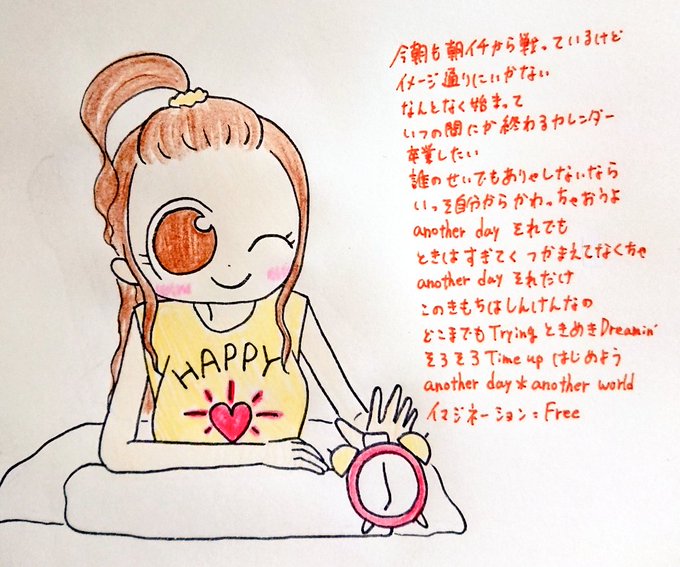 今朝も朝イチから戦っているけど
イメージ通りにいかない
なんとなく始まって
いつの間にか終わるカレンダー
卒業したい
誰のせいでもありゃしないなら
いっそ自分からかわっちゃおうよ
another day それでも
ときはすぎてく つかまえてなくちゃ
another day それだけ
このきもちはしんけんなの
どこまでもTrying ときめきDreamin'
そろそろTime up はじめよう
another day*another world
イマジネーション=Free
HAPPY